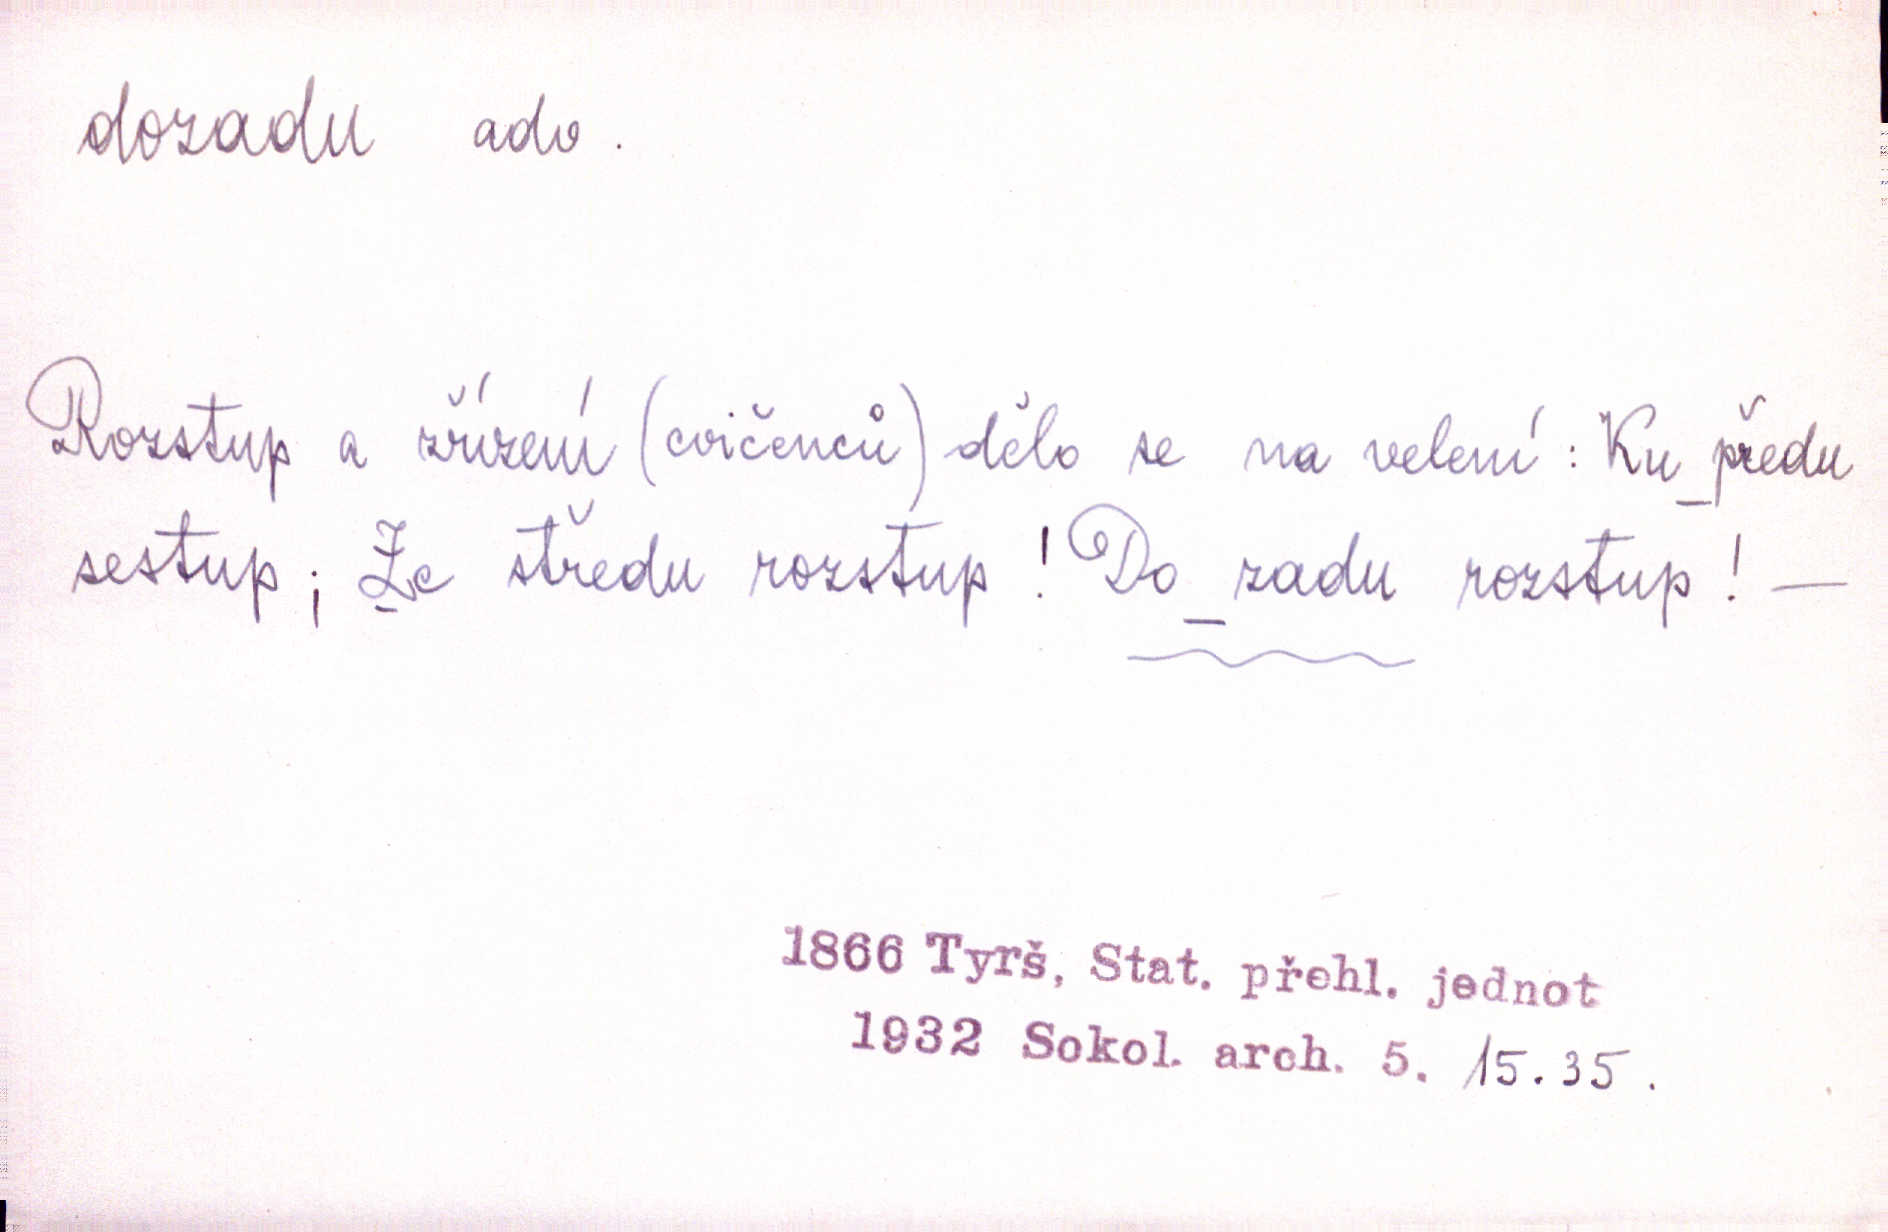 dozadu adv.
Rozstup a zřízení (cvičenců) dělo se na velení: Ku_předu
sestup; Ze středu rozstup! Do_zadu rozstup! —
1866 Tyrš, Stat. přehl. jednot
1932 Sokol. arch. 5. 15.35.